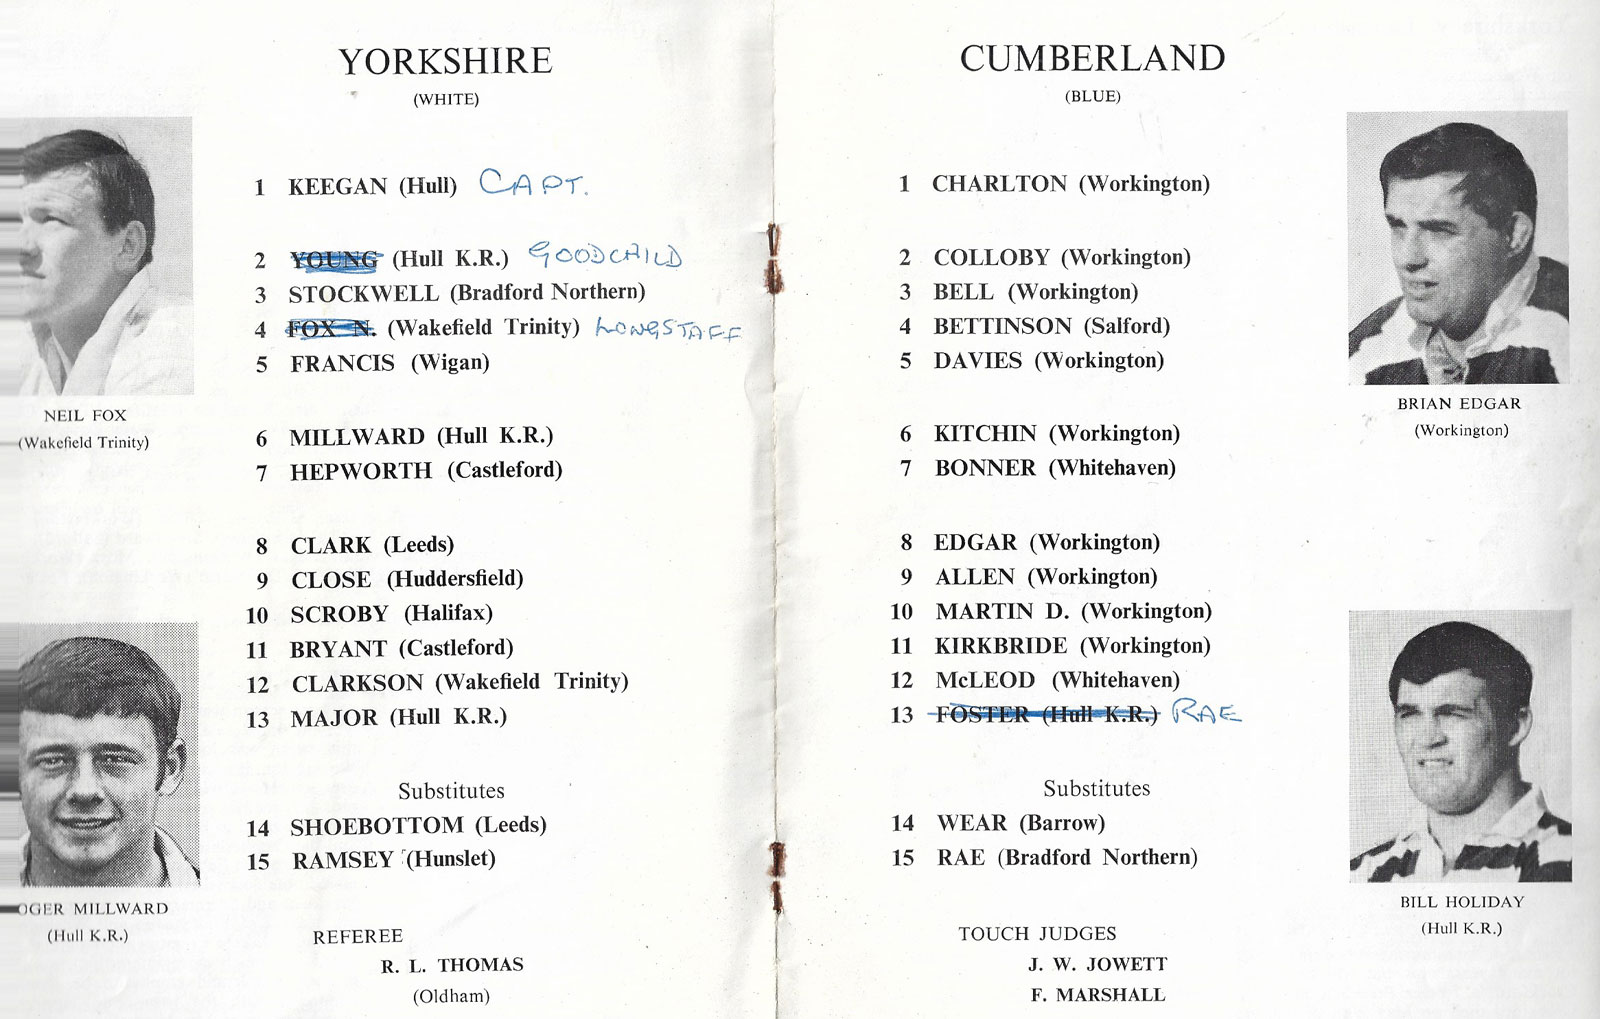 YORKSHIRE
(WHITE)
1 KEEGAN (Hull) CAPT.
2 YOUNG (Hull K.R.) GOODCHILD
3 STOCKWELL (Bradford Northern)
4 FOX N. (Wakefield Trinity) LONGSTAFF
5 FRANCIS (Wigan)
6 MILLWARD (Hull K.R.)
7 HEPWORTH (Castleford)
8 CLARK (Leeds)
9 CLOSE (Huddersfield)
10 SCROBY (Halifax)
11 BRYANT (Castleford)
12 CLARKSON (Wakefield Trinity)
13 MAJOR (Hull K.R.)
Substitutes
14 SHOEBOTTOM (Leeds)
15 RAMSEY (Hunslet)
REFEREE
R. L. THOMAS
(Oldham)
NEIL FOX
(Wakefield Trinity)
OGER MILLWARD
(Hull K.R.)
CUMBERLAND
(BLUE)
1 CHARLTON (Workington)
2 COLLOBY (Workington)
3 BELL (Workington)
4 BETTINSON (Salford)
5 DAVIES (Workington)
6 KITCHIN (Workington)
7 BONNER (Whitehaven)
8 EDGAR (Workington)
9 ALLEN (Workington)
10 MARTIN D. (Workington)
11 KIRKBRIDE (Workington)
12 McLEOD (Whitehaven)
13 FOSTER (Hull K.R.) RAE
Substitutes
14 WEAR (Barrow)
15 RAE (Bradford Northern)
TOUCH JUDGES
J. W. JOWETT
F. MARSHALL
BRIAN EDGAR
(Workington)
BILL HOLIDAY
(Hull K.R.)